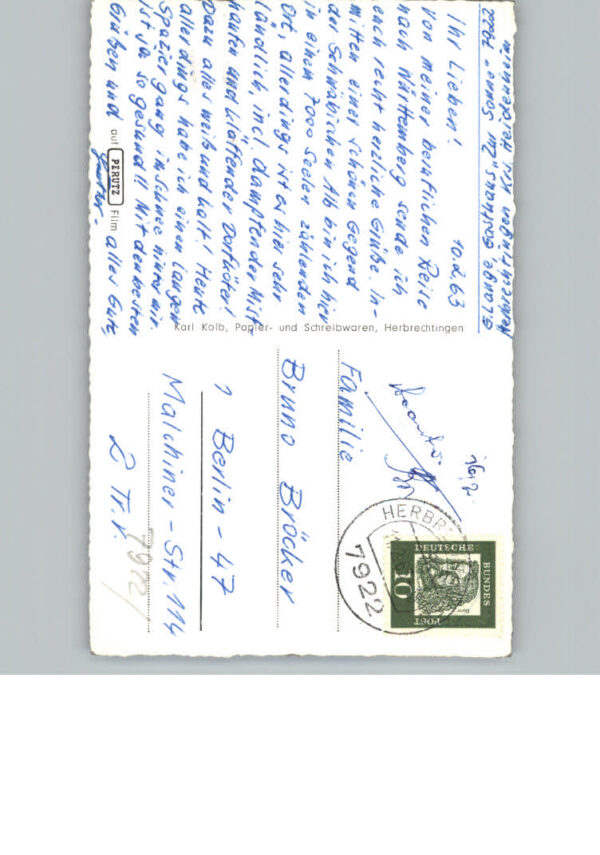 7922
Herbrechtingen Krs. Heidenheim
Gasthaus zur Sonne
10.2.63
Ihr Lieben!
Von meiner beruflichen Reise
nach Württemberg sende ich
euch recht herzliche Grüße. In-
mitten einer schönen Gegend
der Schwäbischen Alb bin ich hier
in einem 7000 Seelen zählenden
Ort, allerdings ist es hier sehr
ländlich, incl. dampfender Mist-
haufen und kläffender Dorfköter!
Dazu alles weiß und kalt. Heute
allerdings habe ich einen langen
Spaziergang im Schnee hinter mir.
Ist ja so gesund!! Mit den besten
Grüßen und alles Gute,
auf PERUTZ Film
Karl Kolb, Papier- und Schreibwaren, Herbrechtingen
Familie
Bruno Bröcker
1 Berlin - 47
Malchiner - Str. 114
2 Tr. r.
7922
HERBR
7922
DEUTSCHE
BUNDES
POST
10